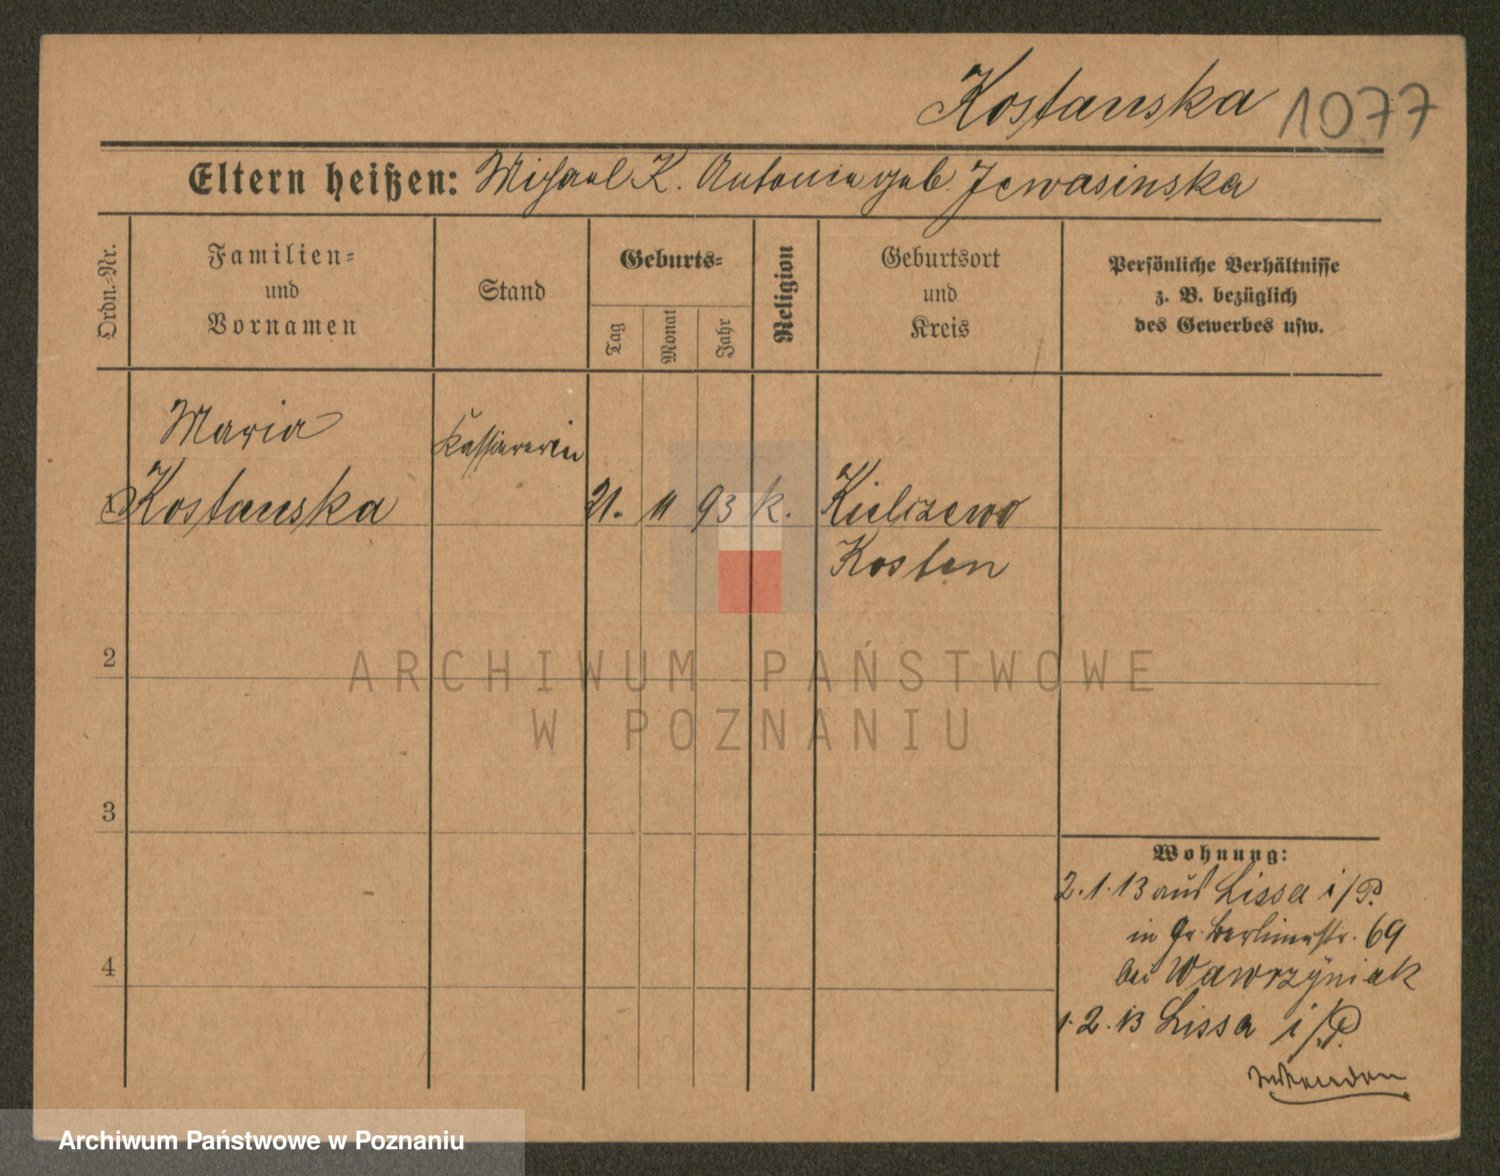 Kostanska 1077
Eltern heißen: Michael K. Antonie geb. Jewasinska
Ordn.-Nr.
Familien-
und
Vornamen
Stand
Geburts-
Tag
Monat
Jahr
Religion
Geburtsort
und
Kreis
Persönliche Verhältnisse
z. B. bezüglich
des Gewerbes usw.
Maria
Kassiererin
1 Kostanska 21. 11 93 k. Kielczewo
Kosten
2
3
4
Wohnung:
2.1.13 aus Lissa i/P.
in Gr. Berlinerstr. 69
bei Wawrzyniak
1.2.13 Lissa i/P.
ARCHIWUM PAŃSTWOWE
W POZNANIU
Archiwum Państwowe w Poznaniu